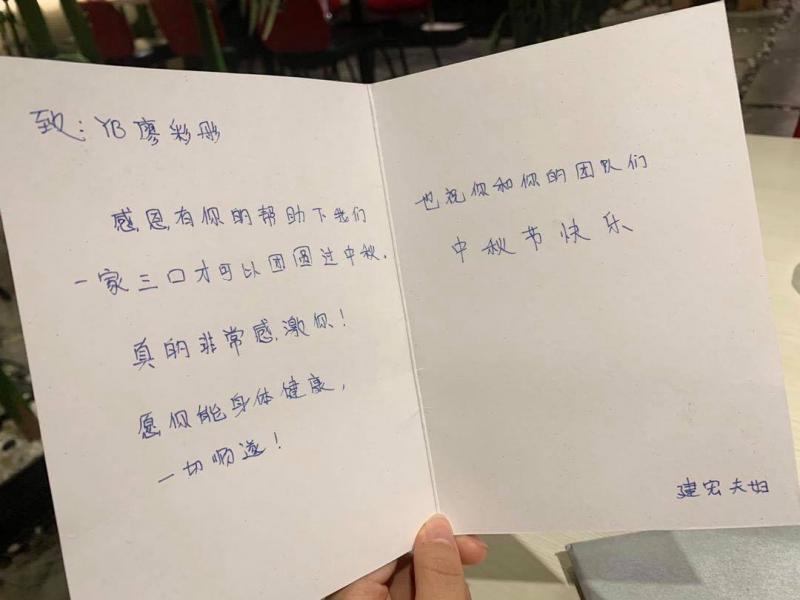 致：YB 廖彩彤
感恩有你的帮助下我们
一家三口才可以团圆过中秋.
真的非常感激你！
愿你能身体健康，
一切顺遂！
也祝你和你的团队们
中秋节快乐
建宏夫妇